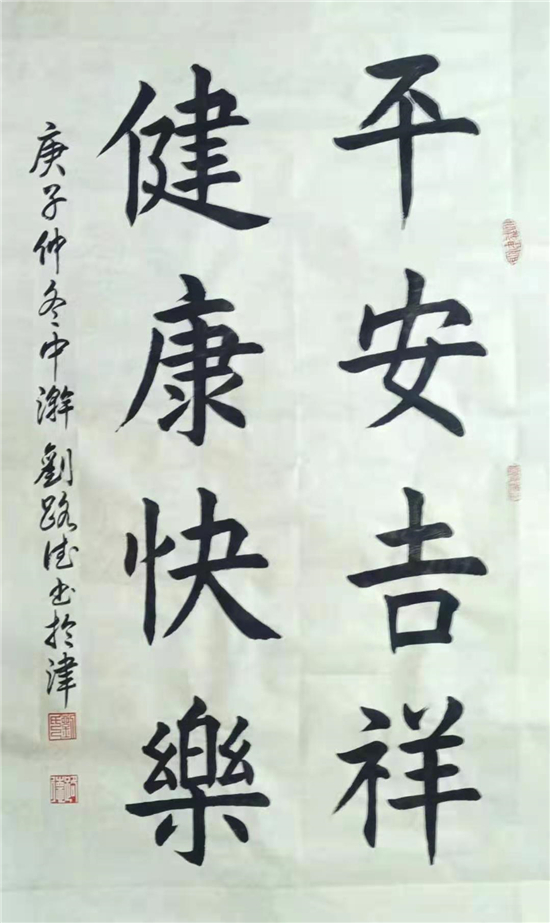 平安吉祥
健康快樂
庚子仲冬中澣劉路德书於津